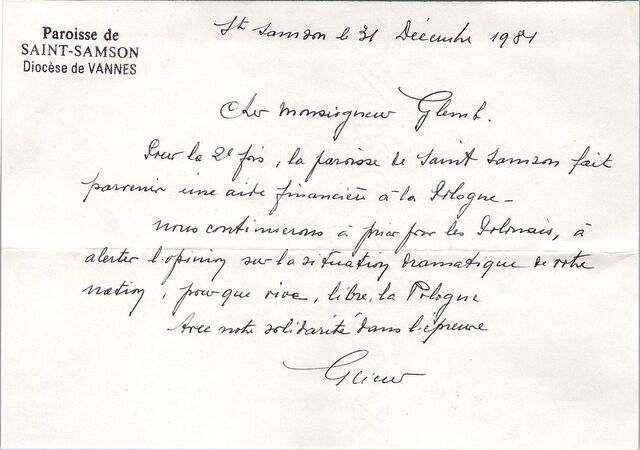 Paroisse de
SAINT-SAMSON
Diocèse de VANNES
St Samson le 31 Décembre 1981
Cher Monsigneur Glemb.
Pour la 2e fois, la paroisse de Saint Samson fait
parvenir une aide financière à la Pologne -
nous continuerons à prier pour les Polonais, à
alerter l'opinion sur la situation dramatique de votre
nation, pour que vive, libre, la Pologne
Avec notre solidarité dans l'épreuve